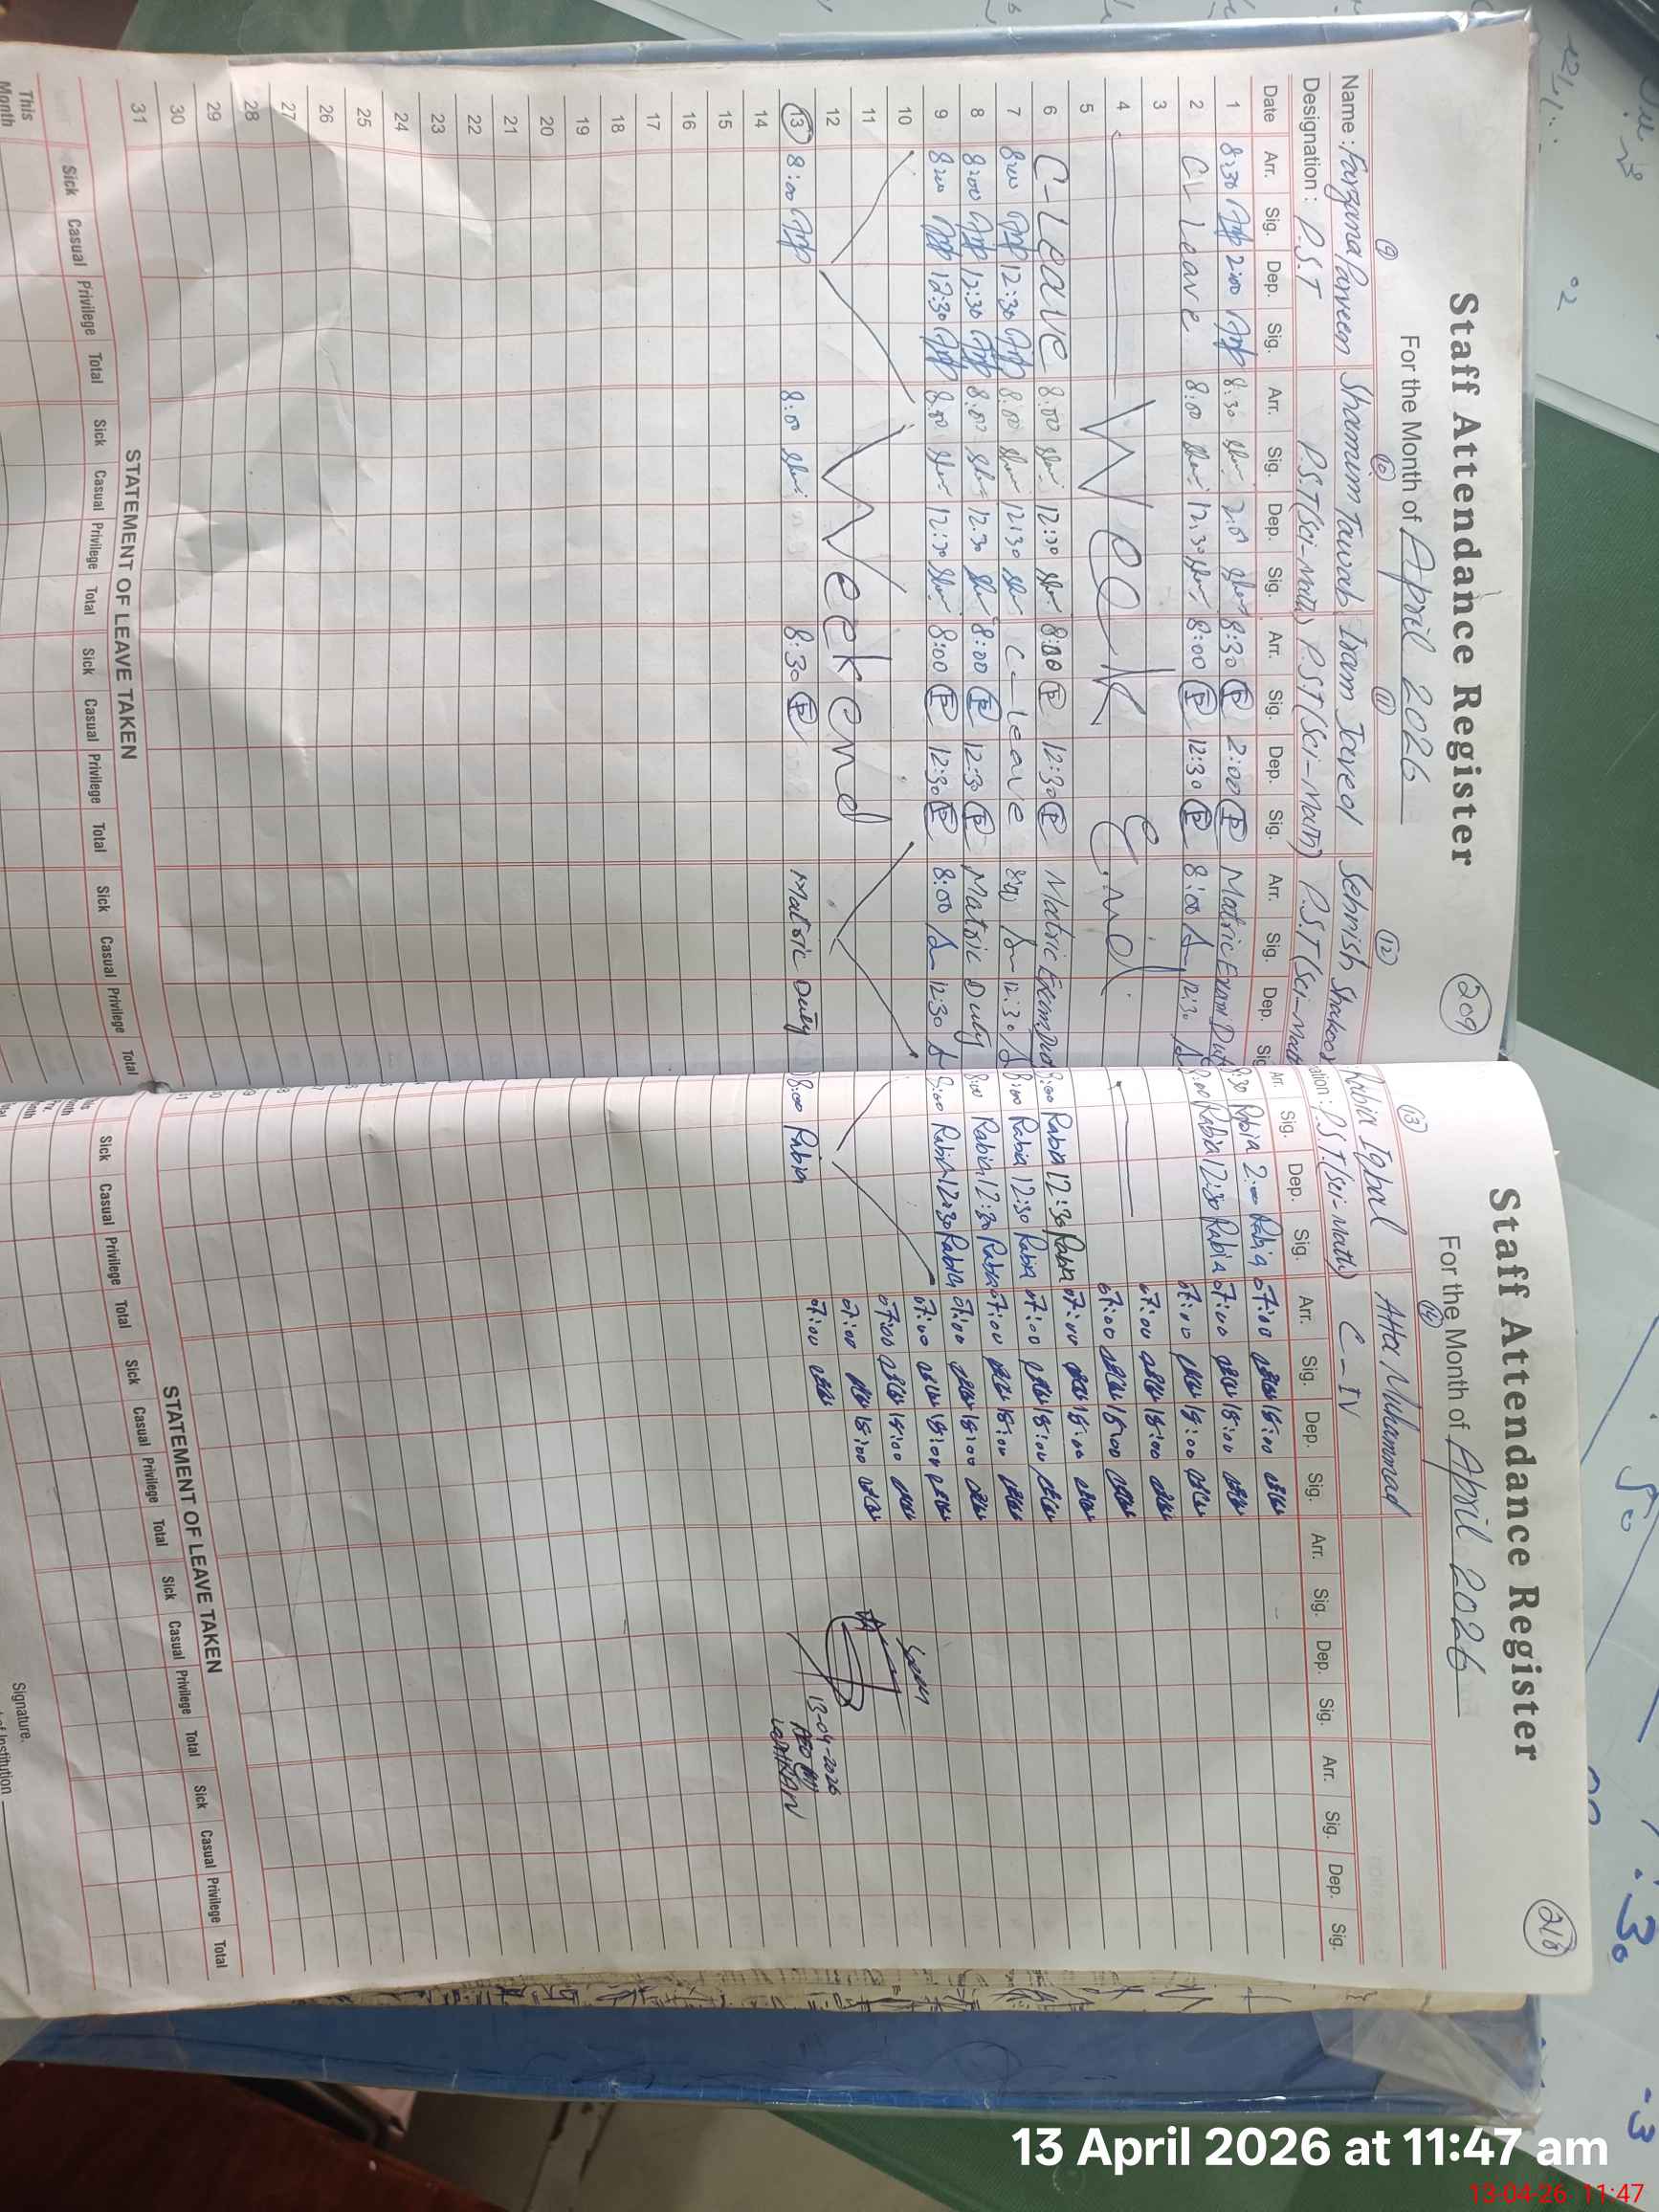 Staff Attendance Register
209
For the Month of April 2026
9 10 11 12
Name : Farzana Parveen Shamim Tawab Iram Javed Sehrish Shakoor
Designation : P.S.T P.S.T(Sci-Math) P.S.T(Sci-Math) P.S.T(Sci-Math)
Date Arr. Sig. Dep. Sig. Arr. Sig. Dep. Sig. Arr. Sig. Dep. Sig. Arr. Sig. Dep. Sig
1 8:30 2:00 8:30 2:00 8:30 2:00 Matric Exam Dut
2 C-Leave 8:00 12:30 8:00 12:30 8:00 12:30
3
4 Week End
5
6 C-Leave 8:00 12:30 8:00 12:30 Matric Exam Duty
7 8:00 12:30 8:00 12:30 C-leave 8:00 12:30
8 8:00 12:30 8:00 12:30 8:00 12:30 Matric Duty
9 8:00 12:30 8:00 12:30 8:00 12:30 8:00 12:30
10
11 Weekend
12
13 8:00 8:00 8:30 Matric Duty
14
15
16
17
18
19
20
21
22
23
24
25
26
27
28
29
30
31
STATEMENT OF LEAVE TAKEN
Sick Casual Privilege Total Sick Casual Privilege Total Sick Casual Privilege Total Sick Casual Privilege Total
This Month
Staff Attendance Register
210
For the Month of April 2026
13 14
Rabia Iqbal Atta Muhammad
ation : P.S.T.(Sci-Math) C-IV
Arr. Sig. Dep. Sig. Arr. Sig. Dep. Sig. Arr. Sig. Dep. Sig. Arr. Sig. Dep. Sig.
8:30 Rabia 2:00 Rabia 07:00 15:00
8:00 Rabia 12:30 Rabia 07:00 15:00
07:00 15:00
07:00 15:00
07:00 15:00
8:00 Rabia 12:30 Rabia 07:00 15:00
8:00 Rabia 12:30 Rabia 07:00 15:00
8:00 Rabia 12:30 Rabia 07:00 15:00
8:00 Rabia 12:30 Rabia 07:00 15:00
07:00 15:00
07:00 15:00
07:00 15:00
8:00 Rabia 07:00
Seen
13-04-2026
AEO
LODHRAN
STATEMENT OF LEAVE TAKEN
Sick Casual Privilege Total Sick Casual Privilege Total Sick Casual Privilege Total Sick Casual Privilege Total
Signature.
of Institution
13 April 2026 at 11:47 am
13-04-26 11:47